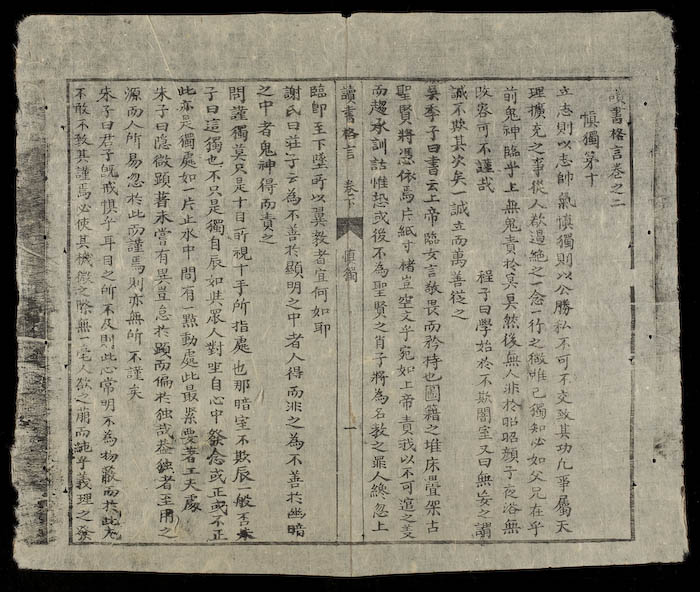 讀書格言卷之二
慎獨第十
立志則以志帥氣慎獨則以公勝私不可不交致其功凡事屬天
理擴充之事從人欲遏絶之一念一行之微唯己獨知必如父兄在乎
前鬼神臨乎上無鬼責於冥冥然後無人非於昭昭顏子夜浴無
改容可不謹哉 程子曰學始於不欺闇室又曰無妄之謂
誠不欺其次矣一誠立而萬善從之
吴季子曰書云上帝臨女言敬畏而矜持也圖籍之堆床疊架古
聖賢將憑依焉片紙寸楮豈空文乎宛如上帝責我以不可逭之
而趨承訓詁惟恐或後不為聖賢之肖子將為名教之罪人纔忽上
讀書格言 卷下 慎獨 一
臨即至下墜所以翼教者宜何如耶
謝氏曰莊子云為不善於顯明之中者人得而非之為不善於幽暗
之中者鬼神得而責之
問謹獨莫只是十目所視十手所指處也那暗室不欺辰一般否朱
子曰這獨也不只是獨自辰如與眾人對坐自心中發念或正或不正
此亦是獨處如一片止水中間有一點動處此最緊要著工夫處
朱子曰隱微顯著未嘗有異豈怠於顯而偏於独哉蓋独者至用之
源而人所易忽於此而謹焉則亦無所不謹矣
朱子曰君子既戒惧乎耳目之所不及則此心常明不為物蔽而於此尤
不敢不致其謹焉必使其機微之際無一毫人欲之萌而純乎義理之發